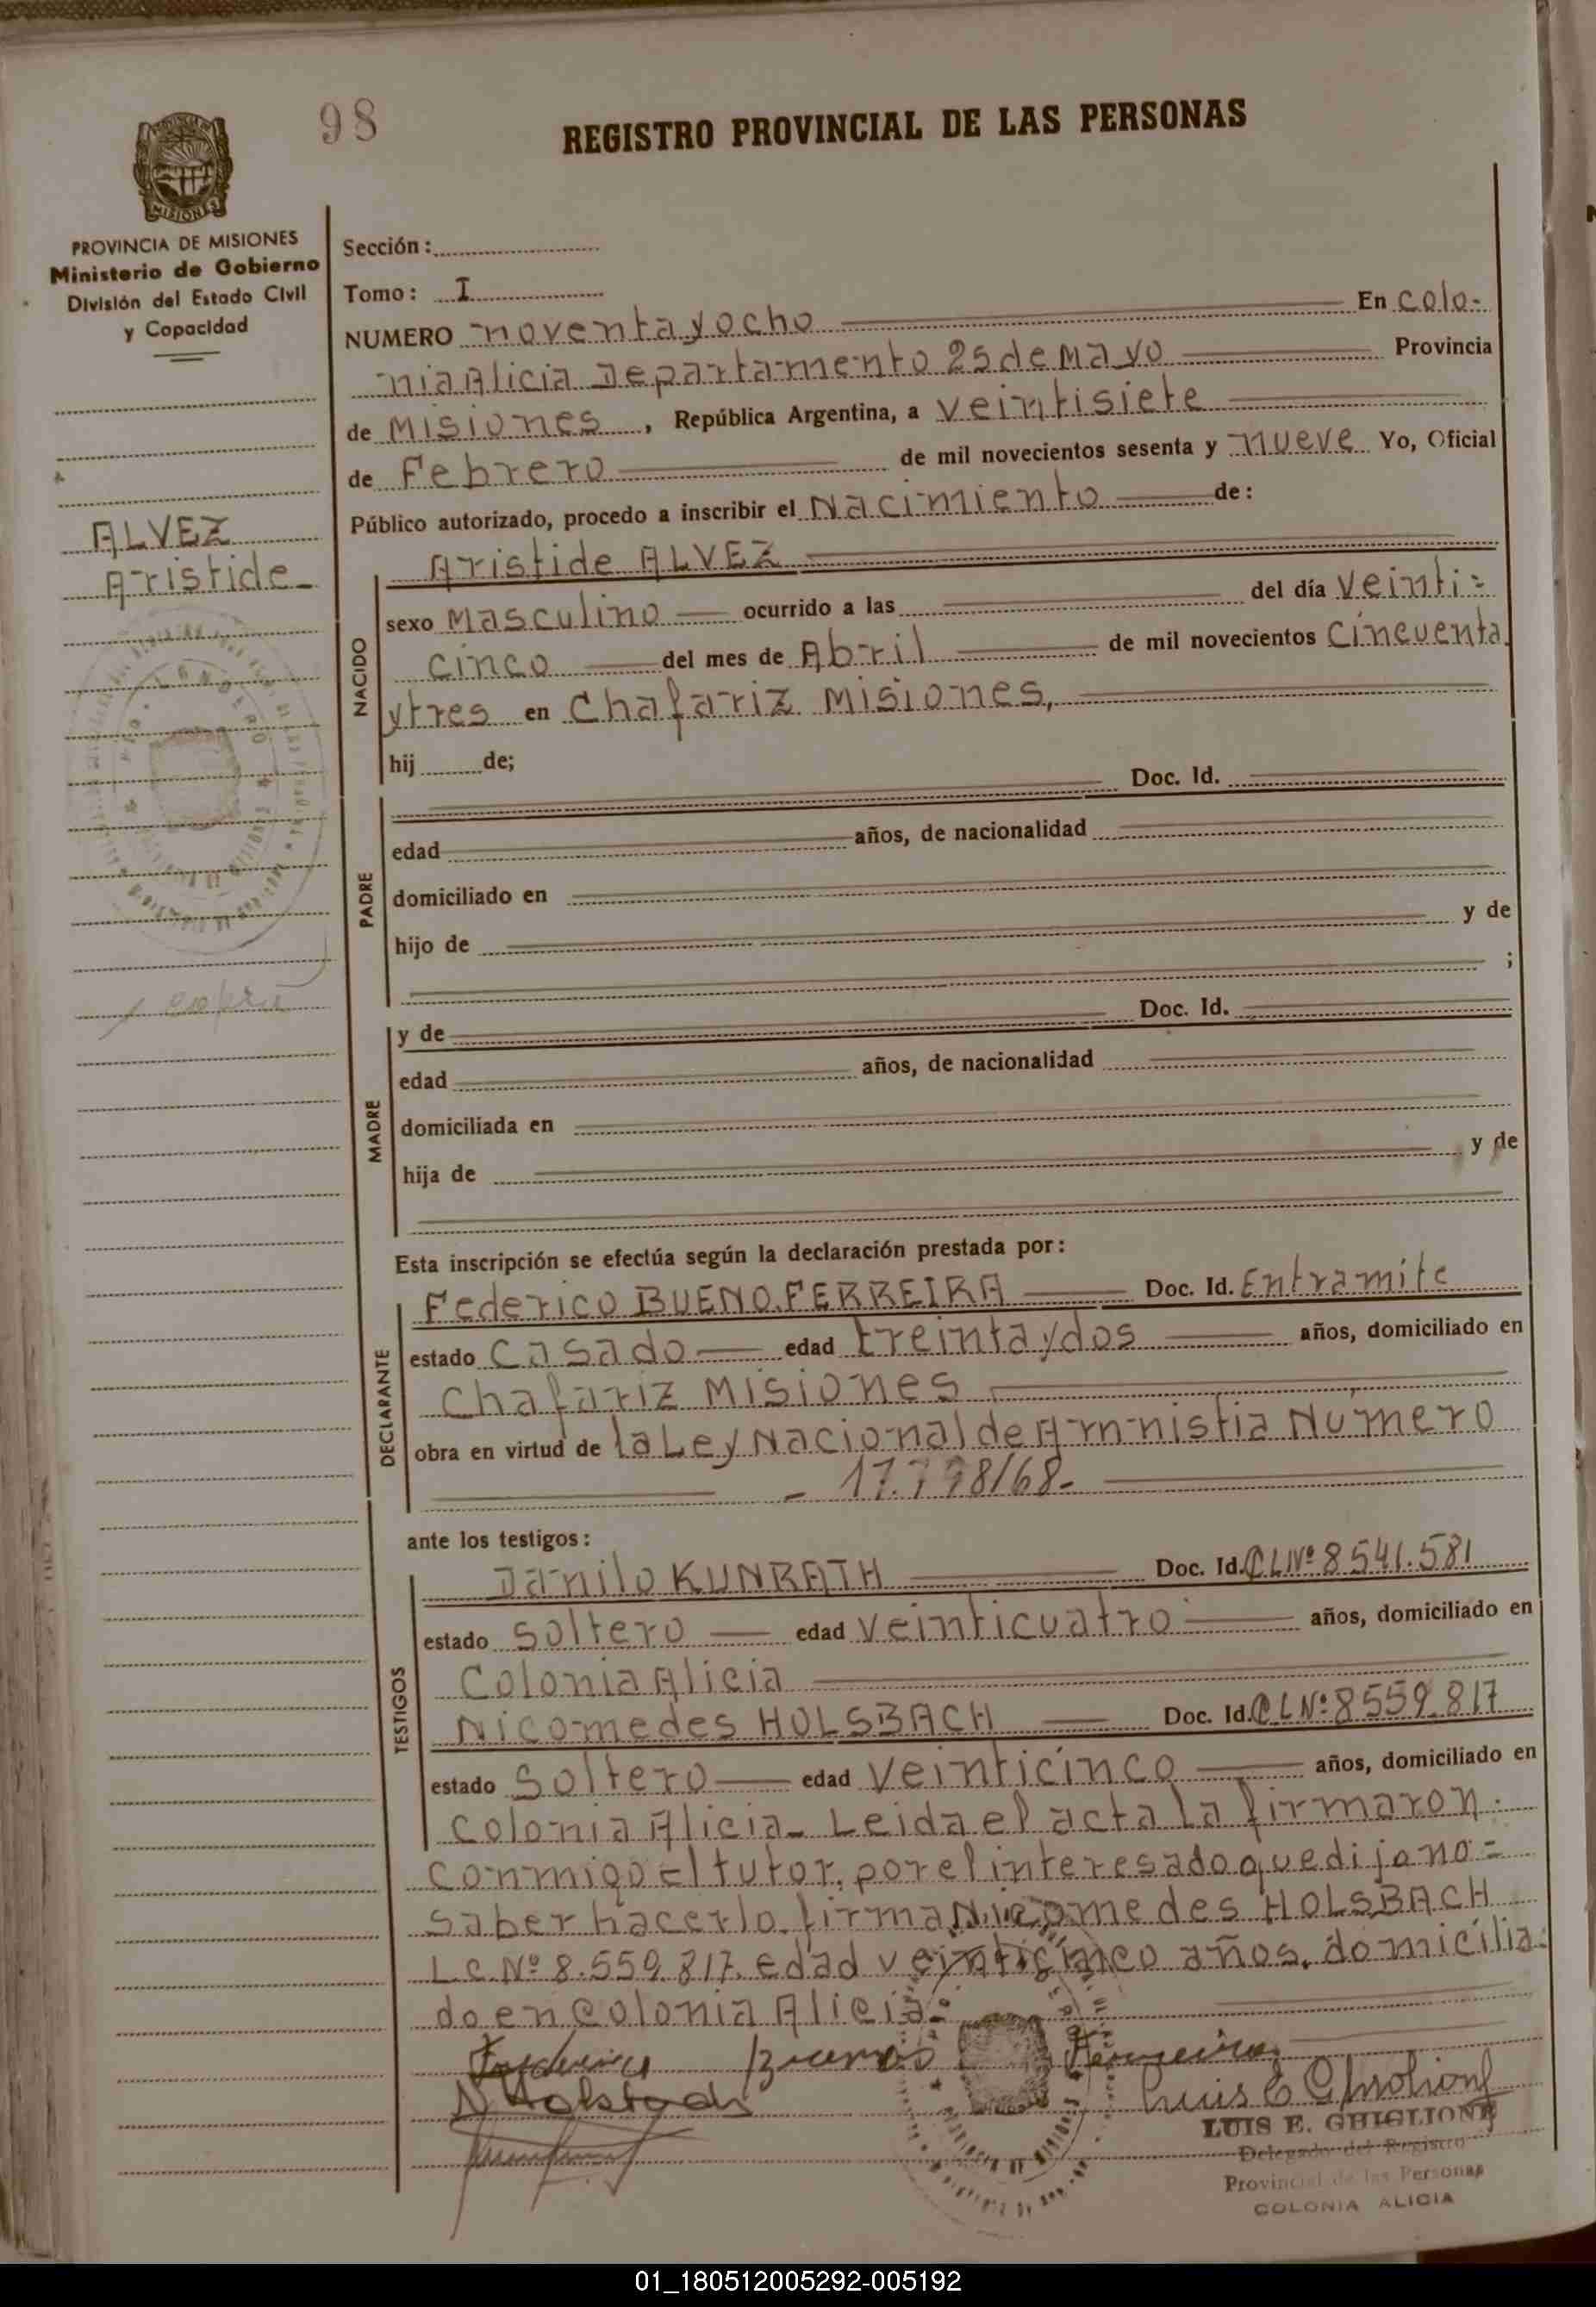 98
REGISTRO PROVINCIAL DE LAS PERSONAS
MISIONES
PROVINCIA DE MISIONES
Ministerio de Gobierno
División del Estado Civil
y Capacidad
ALVEZ
Aristide
Sección:
Tomo: I
NUMERO noventa y ocho En Colo-
nia Alicia Departamento 25 de Mayo Provincia
de Misiones, República Argentina, a veintisiete
de Febrero de mil novecientos sesenta y nueve Yo, Oficial
Público autorizado, procedo a inscribir el Nacimiento de:
Aristide ALVEZ
NACIDO
sexo Masculino ocurrido a las del día Veinti=
cinco del mes de Abril de mil novecientos Cincuenta
y tres en Chafariz Misiones,
hij de;
PADRE
Doc. Id.
edad años, de nacionalidad
domiciliado en
hijo de y de
;
MADRE
y de Doc. Id.
edad años, de nacionalidad
domiciliada en
hija de y de
Esta inscripción se efectúa según la declaración prestada por:
DECLARANTE
Federico BUENO FERREIRA Doc. Id. En tramite
estado Casado edad treinta y dos años, domiciliado en
Chafariz Misiones
obra en virtud de la Ley Nacional de Amnistia Numero
- 17.778/68-
ante los testigos:
TESTIGOS
Danilo KUNRATH Doc. Id. CLNº 8541.581
estado Soltero edad veinticuatro años, domiciliado en
Colonia Alicia
Nicomedes HOLSBACH Doc. Id. CLNº 8559.817
estado Soltero edad veinticinco años, domiciliado en
Colonia Alicia- Leida el acta la firmaron
conmigo el tutor, por el interesado que dijo no=
saber hacerlo firma Nicomedes HOLSBACH
L.C.Nº 8.559.817. edad veinticinco años, domicilia=
do en Colonia Alicia-
LUIS E. GHIGLIONE
Delegado del Registro
Provincial de las Personas
COLONIA ALICIA
01_180512005292-005192